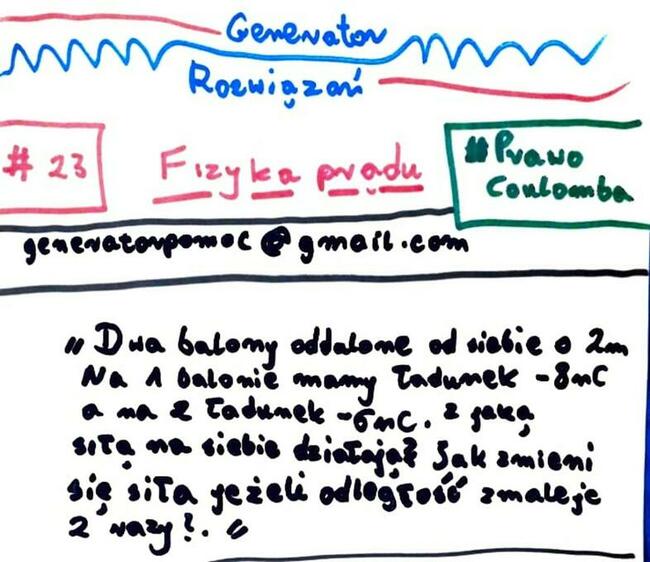 Generator
Rozwiązań
# 23
Fizyka prądu
#Prawo
Coulomba
generatorpomoc@gmail.com
"Dwa balony oddalone od siebie o 2m
Na 1 balonie mamy ładunek -8nC
a na 2 ładunek -6nC. z jaką
siłą na siebie działają? Jak zmieni
się siła jeżeli odległość zmaleje
2 razy?."